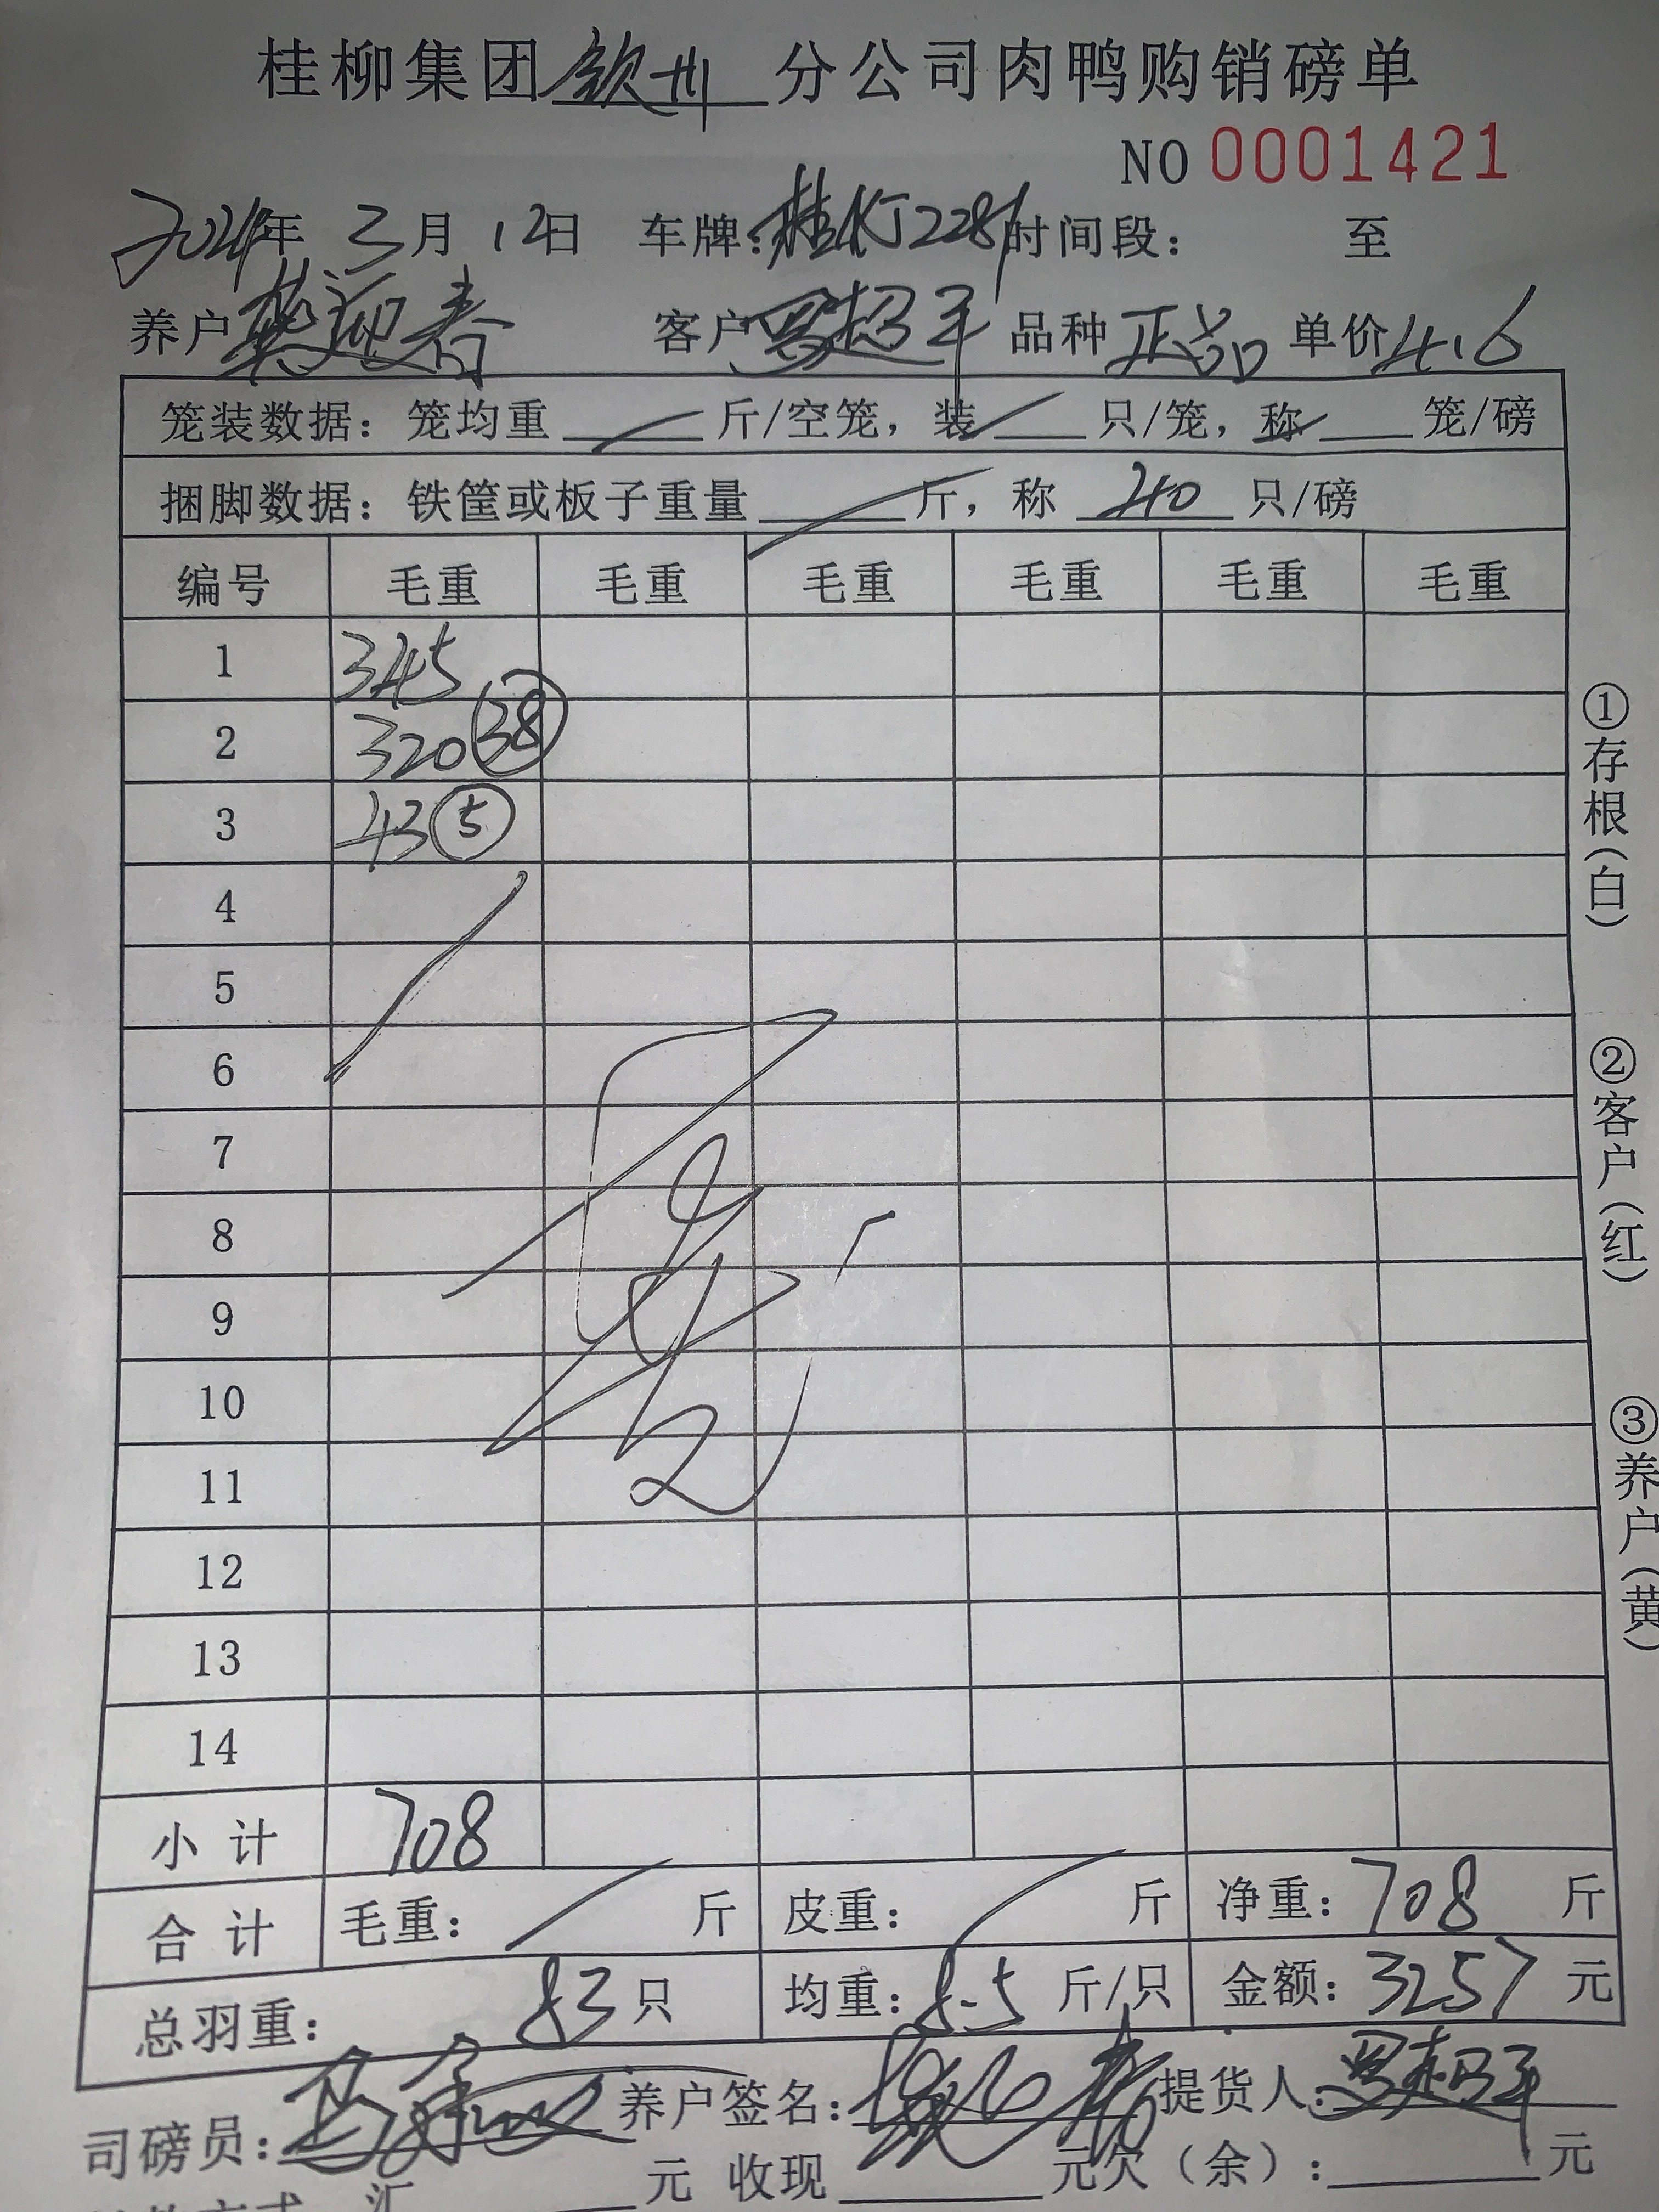 桂柳集团钦州分公司肉鸭购销磅单
NO 0001421
2024年 3月 12日 车牌:桂KJ2281 时间段: 至
养户 迎春 客户 罗超平 品种 正品 单价 4.6
笼装数据: 笼均重 斤/空笼, 装 只/笼, 称 笼/磅
捆脚数据: 铁筐或板子重量 斤, 称 40 只/磅
编号 毛重 毛重 毛重 毛重 毛重 毛重
1 345
2 320 (38)
3 43 (5)
4
5
6
7
8
9
10
11
12
13
14
小计 708
合计 毛重: 斤 皮重: 斤 净重: 708 斤
总羽重: 83 只 均重: 8.5 斤/只 金额: 3257 元
司磅员: 养户签名: 春 提货人: 罗超平
元 收现 元欠(余): 元
汇
①存根(白)
②客户(红)
③养户(黄)